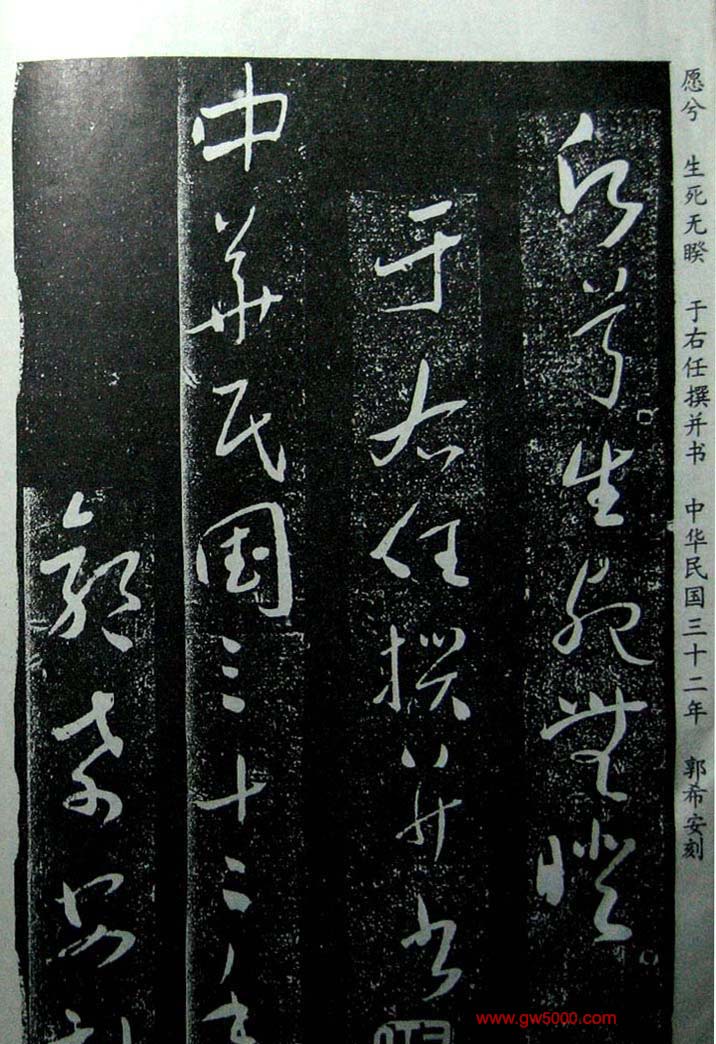 愿兮 生死无睽 于右任撰并书 中华民国三十二年 郭希安刻
兮生死無睽
于右任撰并书
中華民国三十二年
郭希安刻
www.gw5000.com